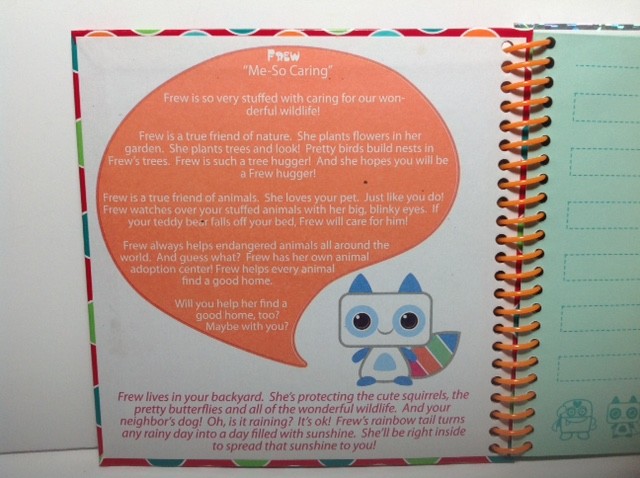 FREW
“Me-So Caring”
Frew is so very stuffed with caring for our won-
derful wildlife!
Frew is a true friend of nature. She plants flowers in her
garden. She plants trees and look! Pretty birds build nests in
Frew's trees. Frew is such a tree hugger! And she hopes you will be
a Frew hugger!
Frew is a true friend of animals. She loves your pet. Just like you do!
Frew watches over your stuffed animals with her big, blinky eyes. If
your teddy bear falls off your bed, Frew will care for him!
Frew always helps endangered animals all around the
world. And guess what? Frew has her own animal
adoption center! Frew helps every animal
find a good home.
Will you help her find a
good home, too?
Maybe with you?
Frew lives in your backyard. She's protecting the cute squirrels, the
pretty butterflies and all of the wonderful wildlife. And your
neighbor's dog! Oh, is it raining? It's ok! Frew's rainbow tail turns
any rainy day into a day filled with sunshine. She'll be right inside
to spread that sunshine to you!